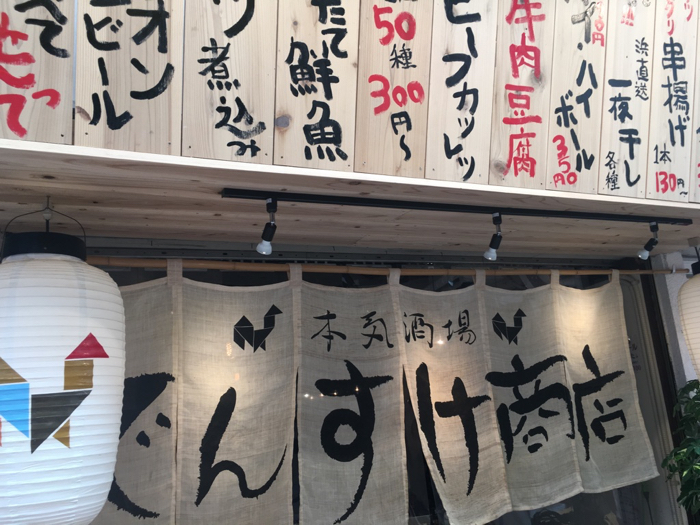 串揚げ
1本
130円〜
浜直送
一夜干し
各種
ハイボール
350円
牛肉豆腐
ビーフカツレツ
50種
300円〜
たて鮮魚
煮込み
オン
ビール
本気酒場
でんすけ商店